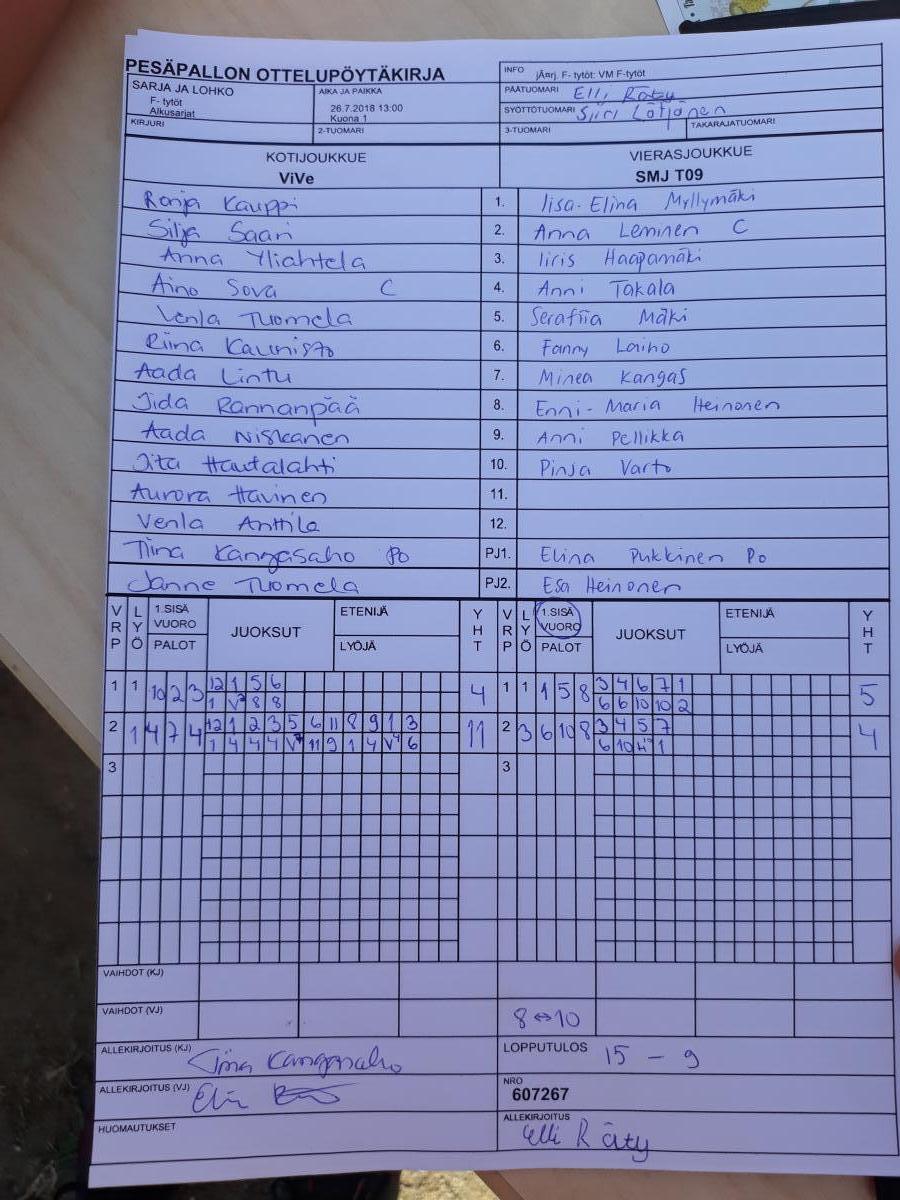 PESÄPALLON OTTELUPÖYTÄKIRJA
INFO jÄ¤rj. F- tytöt: VM F-tytöt
SARJA JA LOHKO
F- tytöt
Alkusarjat
AIKA JA PAIKKA
26.7.2018 13:00
Kuona 1
PÄÄTUOMARI Elli Räty
SYÖTTÖTUOMARI Siiri
KIRJURI
2-TUOMARI
3-TUOMARI
TAKARAJATUOMARI
KOTIJOUKKUE VIERASJOUKKUE
ViVe SMJ T09
Ronja Kauppi 1. Iisa-Elina Myllymäki
Silja Saari 2. Anna Leminen C
Anna Yliahtela 3. Iiris Haapamäki
Aino Sova C 4. Anni Takala
Venla Tuomela 5. Serafiia Mäki
Riina Kaunisto 6. Fanny Laiho
Aada Lintu 7. Minea Kangas
Iida Rannanpää 8. Enni-Maria Heinonen
Aada Niskanen 9. Anni Pellikka
Iita Hautalahti 10. Pinja Varto
Aurora Havinen 11.
Venla Anttila 12.
Tiina Kangasaho Po PJ1. Elina Pukkinen Po
Janne Tuomela PJ2. Esa Heinonen
VRP LYÖ 1.SISÄ VUORO PALOT JUOKSUT ETENIJÄ LYÖJÄ YHT VRP LYÖ 1.SISÄ VUORO PALOT JUOKSUT ETENIJÄ LYÖJÄ YHT
1 1 10 2 3 12 1 5 6 4 1 1 1 5 8 3 4 6 7 1 5
1 V² 8 8 6 6 10 10 2
2 1 4 7 4 12 1 2 3 5 6 11 8 9 1 3 11 2 3 6 10 8 3 4 5 7 4
1 4 4 4 V⁷ 11 9 1 4 V⁴ 6 6 10 1
3 3
VAIHDOT (KJ)
VAIHDOT (VJ) 8 ↔ 10
ALLEKIRJOITUS (KJ) Tiina Kangasaho
LOPPUTULOS 15 - 9
ALLEKIRJOITUS (VJ)
NRO
607267
HUOMAUTUKSET
ALLEKIRJOITUS
Elli Räty